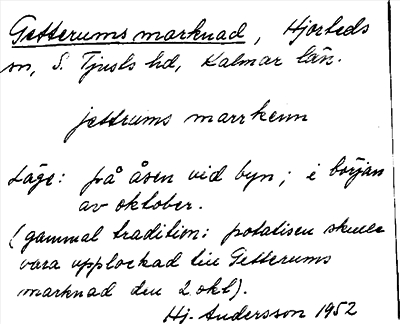 Getterums marknad, Hjorteds
sn, S. Tjusts hd, Kalmar län.
jettrums marrkenn
Läge: på åsen vid byn; i början
av oktober.
(gammal tradition: potatisen skulle
vara upplockad till Getterums
marknad den 2 okt).
Hj. Andersson 1952